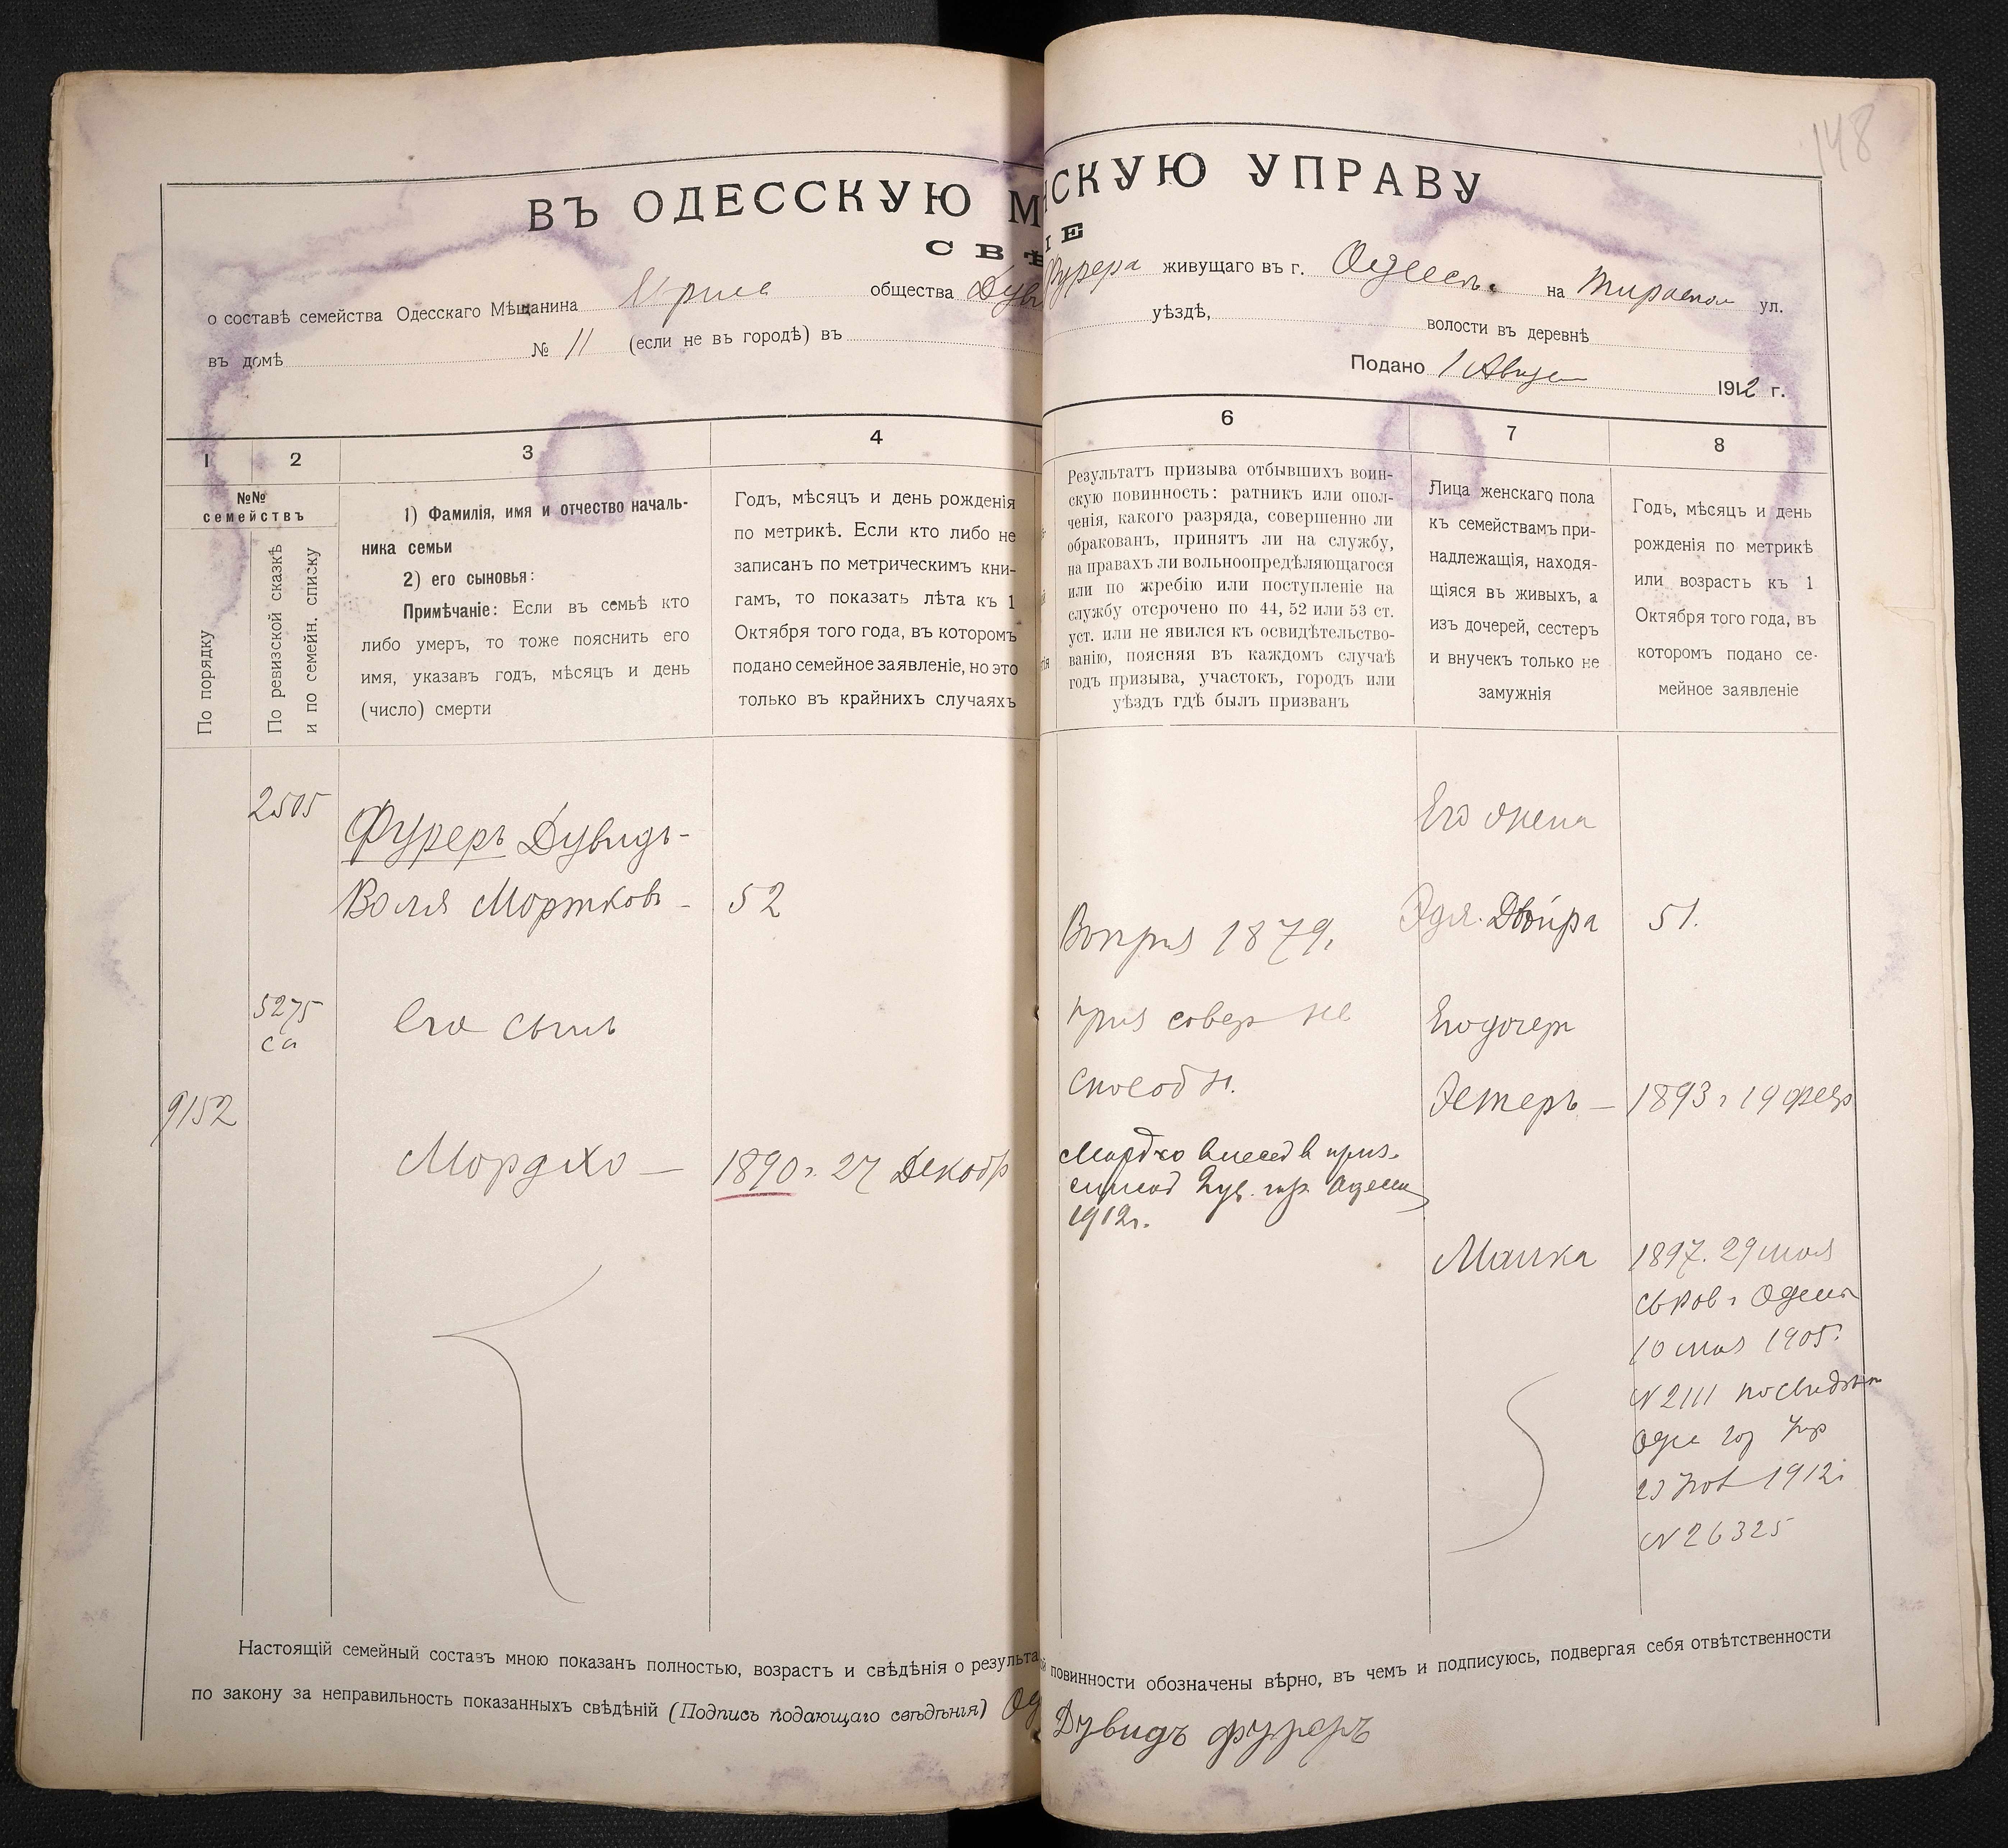 148
ВЪ ОДЕССКУЮ М
СКУЮ УПРАВУ
СВѢ
ІЕ
о составѣ семейства Одесскаго Мѣщанина
общества Дув
Фурера живущаго въ г. Одессѣ на
ул.
въ домѣ № 11 (если не въ городѣ) въ
уѣздѣ, волости въ деревнѣ
Подано 1 1912 г.
1 2 3 4
6 7 8
№№
семействъ
По порядку
По ревизской сказкѣ
и по семейн. списку
1) Фамилія, имя и отчество началь-
ника семьи
2) его сыновья:
Примѣчаніе: Если въ семьѣ кто
либо умеръ, то тоже пояснить его
имя, указавъ годъ, мѣсяцъ и день
(число) смерти
Годъ, мѣсяцъ и день рожденія
по метрикѣ. Если кто либо не
записанъ по метрическимъ кни-
гамъ, то показать лѣта къ 1
Октября того года, въ которомъ
подано семейное заявленіе, но это
только въ крайнихъ случаяхъ
Результатъ призыва отбывшихъ воин-
скую повинность: ратникъ или опол-
ченія, какого разряда, совершенно ли
обракованъ, принятъ ли на службу,
на правахъ ли вольноопредѣляющагося
или по жребію или поступленіе на
службу отсрочено по 44, 52 или 53 ст.
уст. или не явился къ освидѣтельство-
ванію, поясняя въ каждомъ случаѣ
годъ призыва, участокъ, городъ или
уѣздъ гдѣ былъ призванъ
Лица женскаго пола
къ семействамъ при-
надлежащія, находя-
щіяся въ живыхъ, а
изъ дочерей, сестеръ
и внучекъ только не
замужнія
Годъ, мѣсяцъ и день
рожденія по метрикѣ
или возрастъ къ 1
Октября того года, въ
которомъ подано се-
мейное заявленіе
2505
Фуреръ Дувидъ-
Воля Мортковъ - 52
5275
са
Его сынъ
9152
Мордко — 1890 г. 27 Декабр
1879.
приз совер не
способн.
Мордко в приз.
Одессы
1912 г.
Его жена
Эдя. Двойра 51.
Его дочери
Эстеръ — 1893 г 19 февр
Малка 1897. 29 мая
10 мая 1905.
N 2111
1912
N 26325
Настоящій семейный составъ мною показанъ полностью, возрастъ и свѣдѣнія о результа
повинности обозначены вѣрно, въ чемъ и подписуюсь, подвергая себя отвѣтственности
по закону за неправильность показанныхъ свѣдѣній (Подпись подающаго свѣдѣнія)
Дувидъ фуреръ